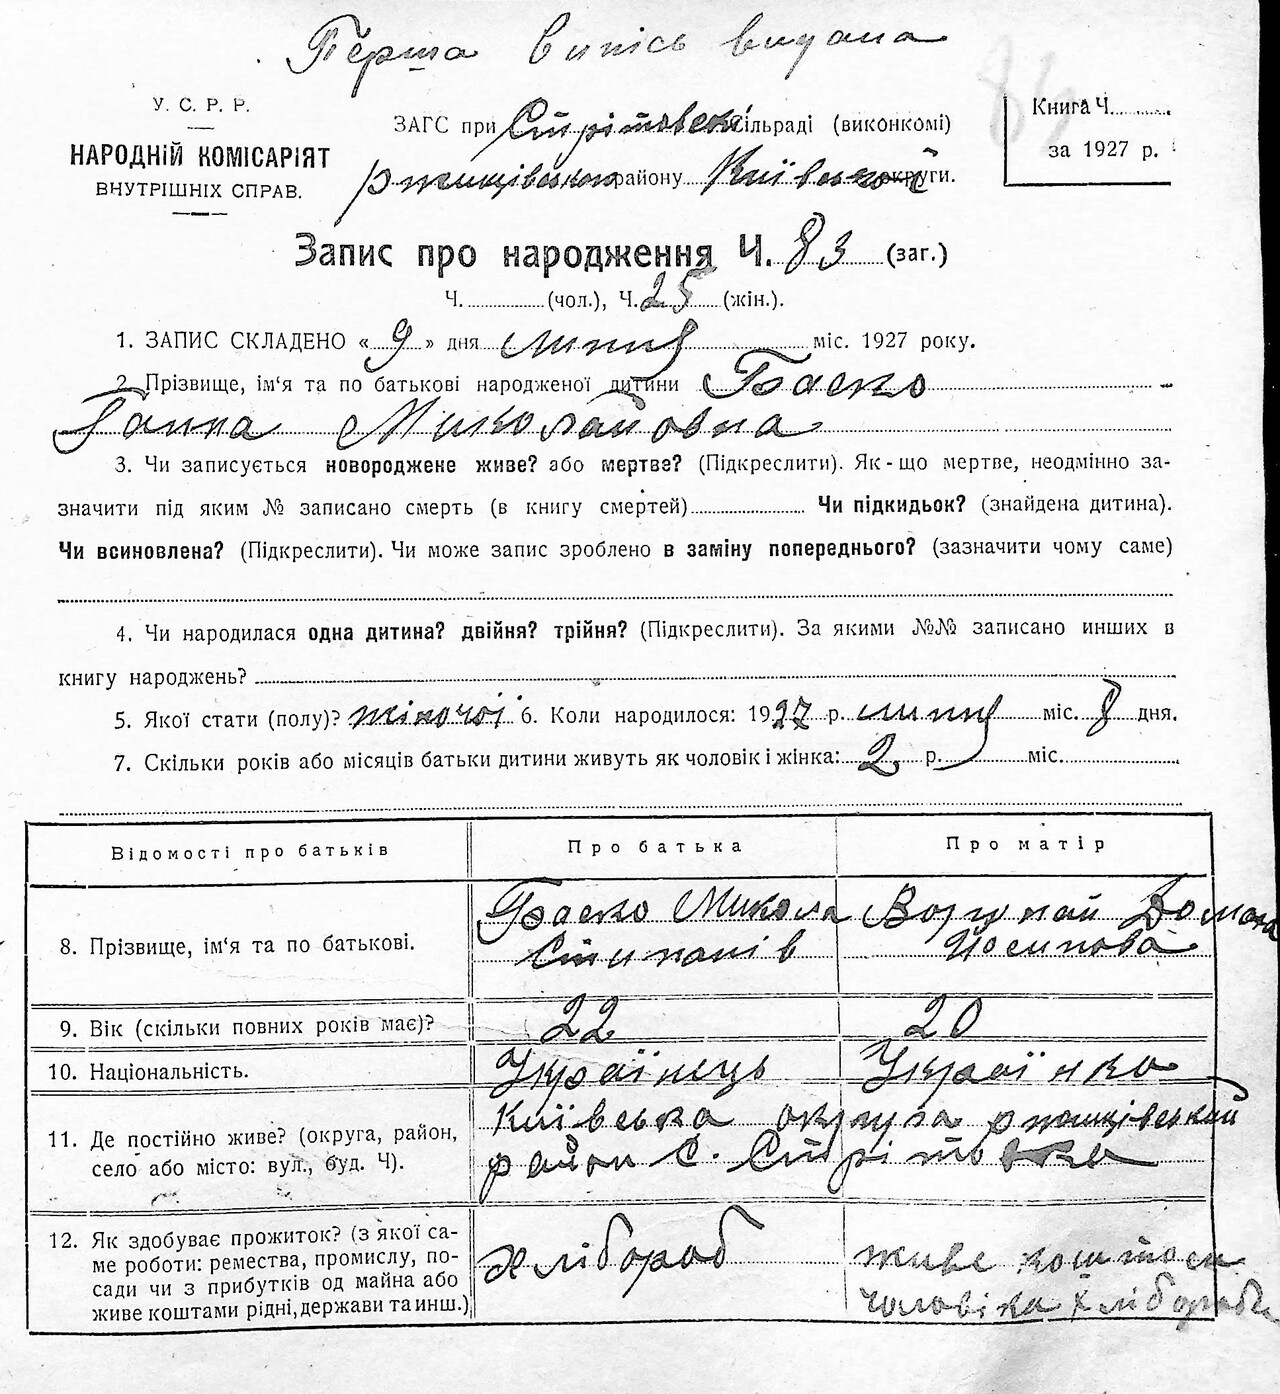 Перша Випись видана
У. С. Р. Р.
НАРОДНІЙ КОМІСАРІЯТ
ВНУТРІШНІХ СПРАВ.
ЗАГС при Стрітовській сільраді (виконкомі)
ржищівського району Київської округи.
Книга Ч.
за 1927 р.
Запис про народження Ч. 83 (заг.)
Ч. (чол.), Ч. 25 (жін.).
1. ЗАПИС СКЛАДЕНО « 9 » дня липня міс. 1927 року.
2. Прізвище, ім'я та по батькові народженої дитини Баско
Ганна Миколаївна
3. Чи записується новороджене живе? або мертве? (Підкреслити). Як-що мертве, неодмінно за-
значити під яким № записано смерть (в книгу смертей) Чи підкидьок? (знайдена дитина).
Чи всиновлена? (Підкреслити). Чи може запис зроблено в заміну попереднього? (зазначити чому саме)
4. Чи народилася одна дитина? двійня? трійня? (Підкреслити). За якими №№ записано инших в
книгу народжень?
5. Якої стати (полу)? жіночої 6. Коли народилося: 1927 р. липня міс. 8 дня.
7. Скільки років або місяців батьки дитини живуть як чоловік і жінка: 2 р. міс.
Відомості про батьків Про батька Про матір
8. Прізвище, ім'я та по батькові. Баско Микола Степанів Домаха Йосипова
9. Вік (скільки повних років має)? 22 20
10. Національність. Українець Українка
11. Де постійно живе? (округа, район,
село або місто: вул., буд. Ч). Київська округа ржищівський
район С. Стрітовка
12. Як здобуває прожиток? (з якої са-
ме роботи: ремества, промислу, по-
сади чи з прибутків од майна або
живе коштами рідні, держави та инш.)
хлібороб
живе коштом
чоловіка хлібороба